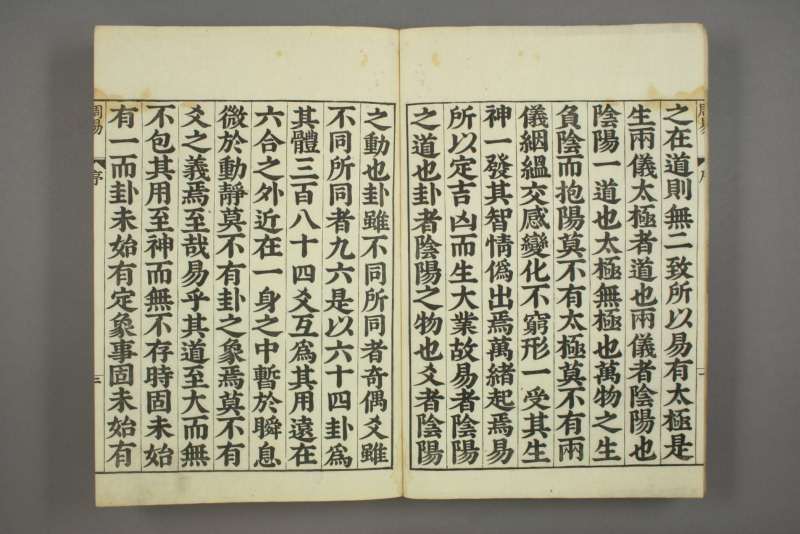 之在道則無二致所以易有太極是
生兩儀太極者道也兩儀者陰陽也
陰陽一道也太極無極也萬物之生
負陰而抱陽莫不有太極莫不有兩
儀絪縕交感變化不窮形一受其生
神一發其智情僞出焉萬緒起焉易
所以定吉凶而生大業故易者陰陽
之道也卦者陰陽之物也爻者陰陽
之動也卦雖不同所同者奇偶爻雖
不同所同者九六是以六十四卦爲
其體三百八十四爻互爲其用遠在
六合之外近在一身之中暫於瞬息
微於動靜莫不有卦之象焉莫不有
爻之義焉至哉易乎其道至大而無
不包其用至神而無不存時固未始
有一而卦未始有定象事固未始有
周易
序
三